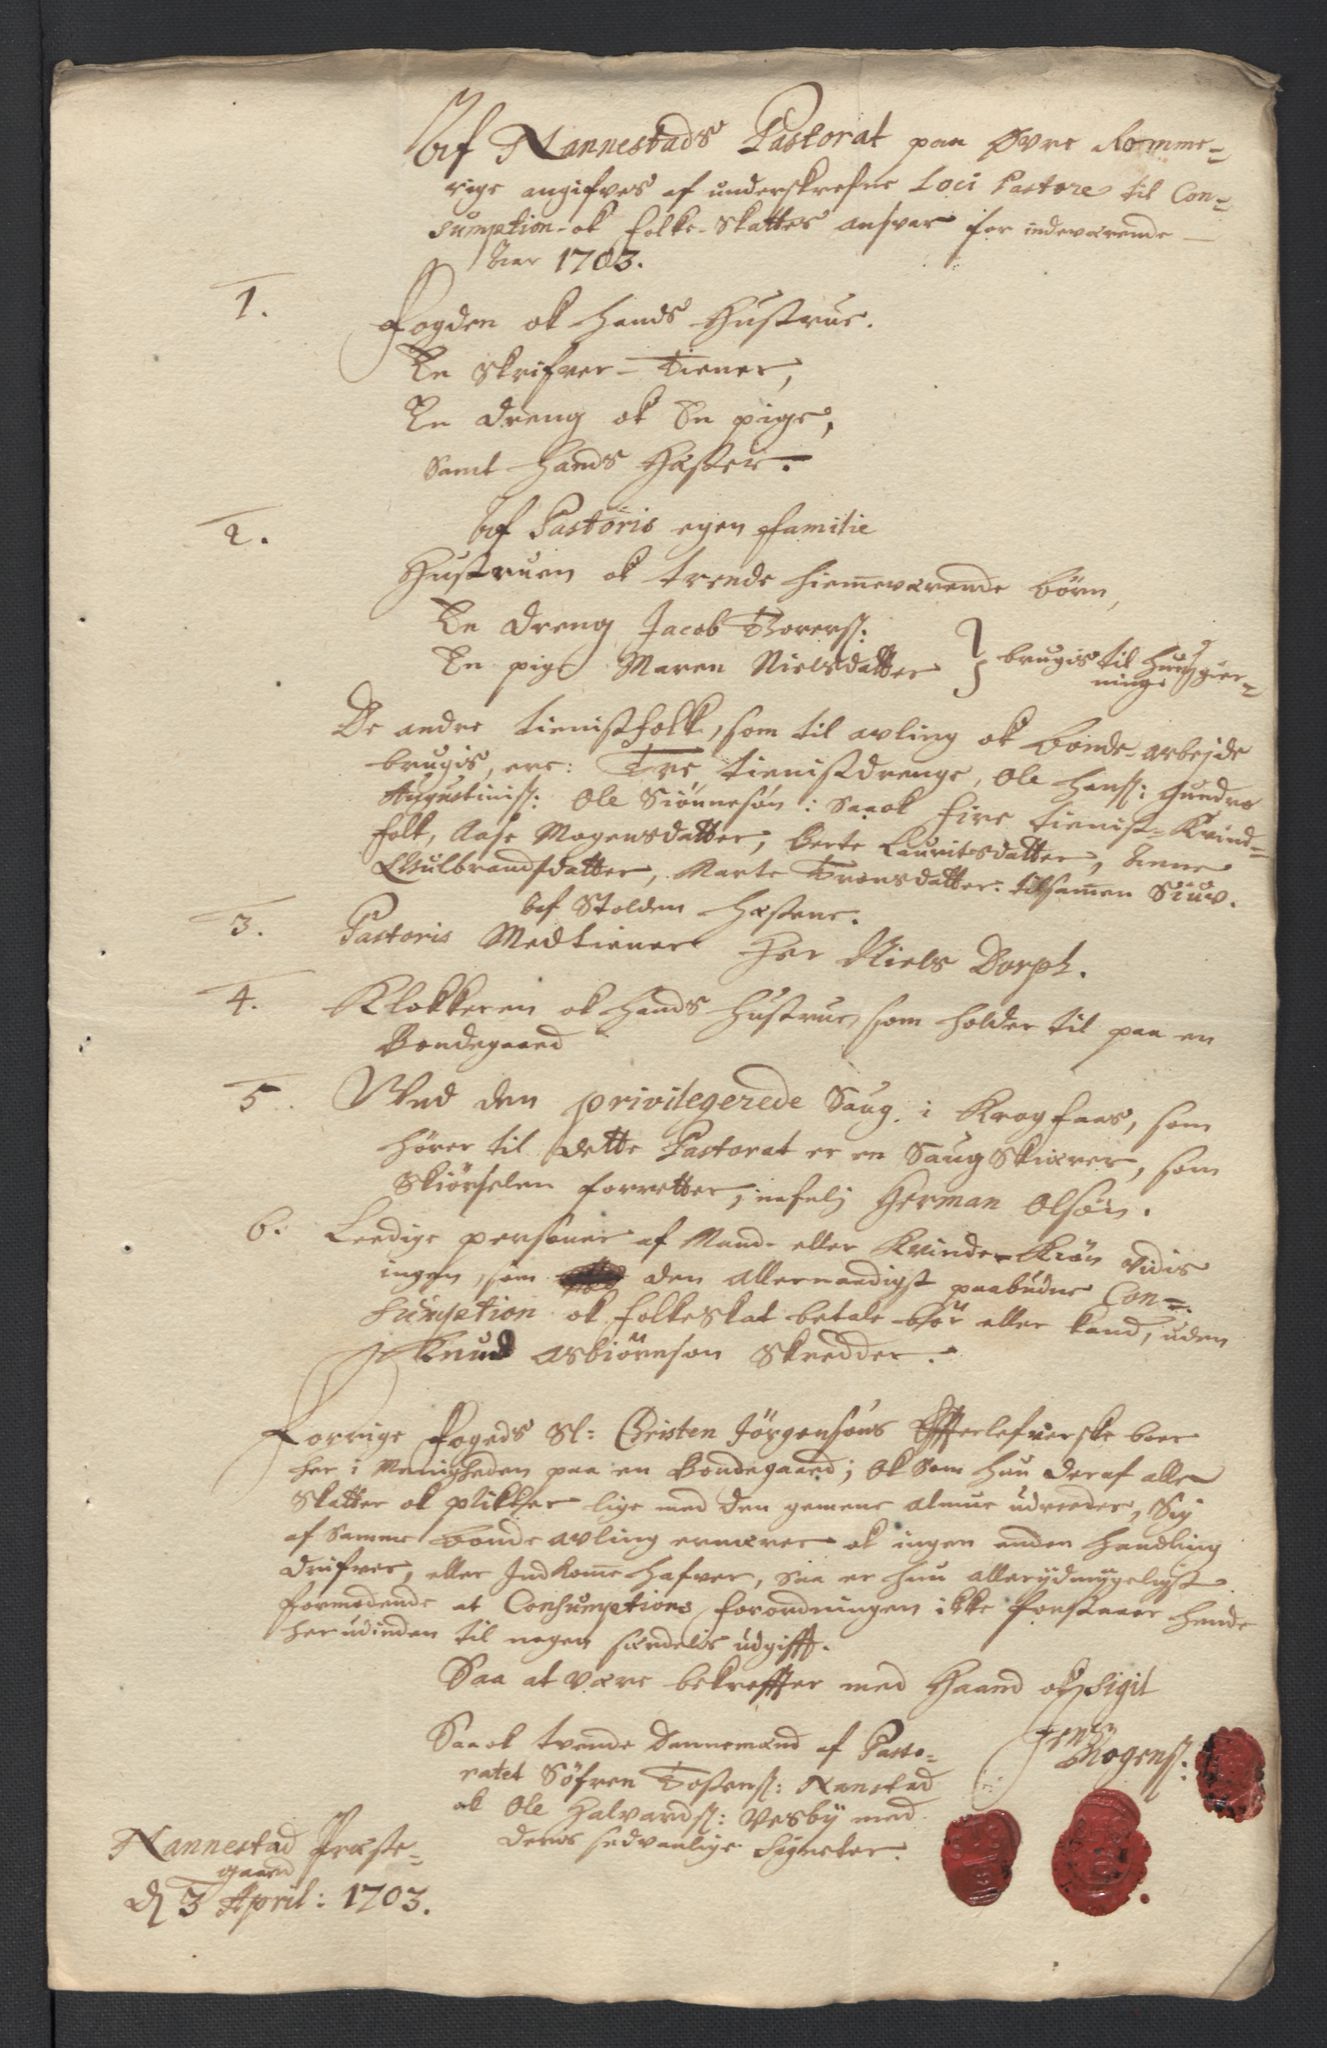 Af Nannestads Pastorat paa Øvre Romme-
rige angifves af underskrefne Loci Pastore til Con-
sumption- ok folke-skattes ansvar for indeværende
Aar 1703.
1. Fogden ok hands Hustrue.
En skrifver-Tiener,
En dreng ok En pige,
samt hands Hæster.
2. Af Pastoris egen familie
Hustruen ok trende hiemeværende børn,
En dreng Jacob Torers:
En pige Maren Nielsdatter } brugis til huusgier-
ninge
De andre tienistfolk, som til avling ok bonde-arbejde
brugis, ere: Tre tienistdrenge, Ole Hans: Gundro
Augustinis: Ole Siønnesøn: saaok fire tienist-Kvind-
folk, Aase Mogensdatter, Berte Lauritsdatter, Anne
Gulbrandsdatter, Marte Tronsdatter: tilsamen Siuv.
af Stolden hæstene.
3. Pastoris Medtiener Her Niels Dorph.
4. Klokkeren ok hands hustrue, som holder til paa en
Bondegaard
5. Ved den privilegerede Saug i Krogfaas, som
hører til dette Pastorat er en Saugskiærer, som
Skiørselen forretter, nafnlig Herman Olsøn.
6. Leedige personer af Mande eller Kvinde-Kiøn vidis
ingen, som den allernaadigst paabudne Con-
sumption ok folkeskat betale bør eller kand, uden
Knud Asbiørnsøn Skredder.
Forrige fogeds Sl: Christen Jørgensøns Effterlefverske boer
her i Menigheden paa en Bondegaard; ok som hun deraf alle
skatter ok plikter lige med den gemene almue udreeder, sig
af samme bonde avling ernærer ok ingen anden handling
drifver, eller Indkomme hafver, saa er hun allerydmygeligst
formodende at Consumptions forordningen ikke forstaaer hende
herudinden til nogen særdelis udgifft.
Saa at være bekreffter med Haand ok Sigil
Jens Mogens:
Saaok tvende Dannemænd af Pasto-
ratet Søfren Tostens: Nanstad
ok Ole Halvards: Vesby med
deres sedvanlige Signeter.
Nannestad Præste-
gaard
d 3 April: 1703.